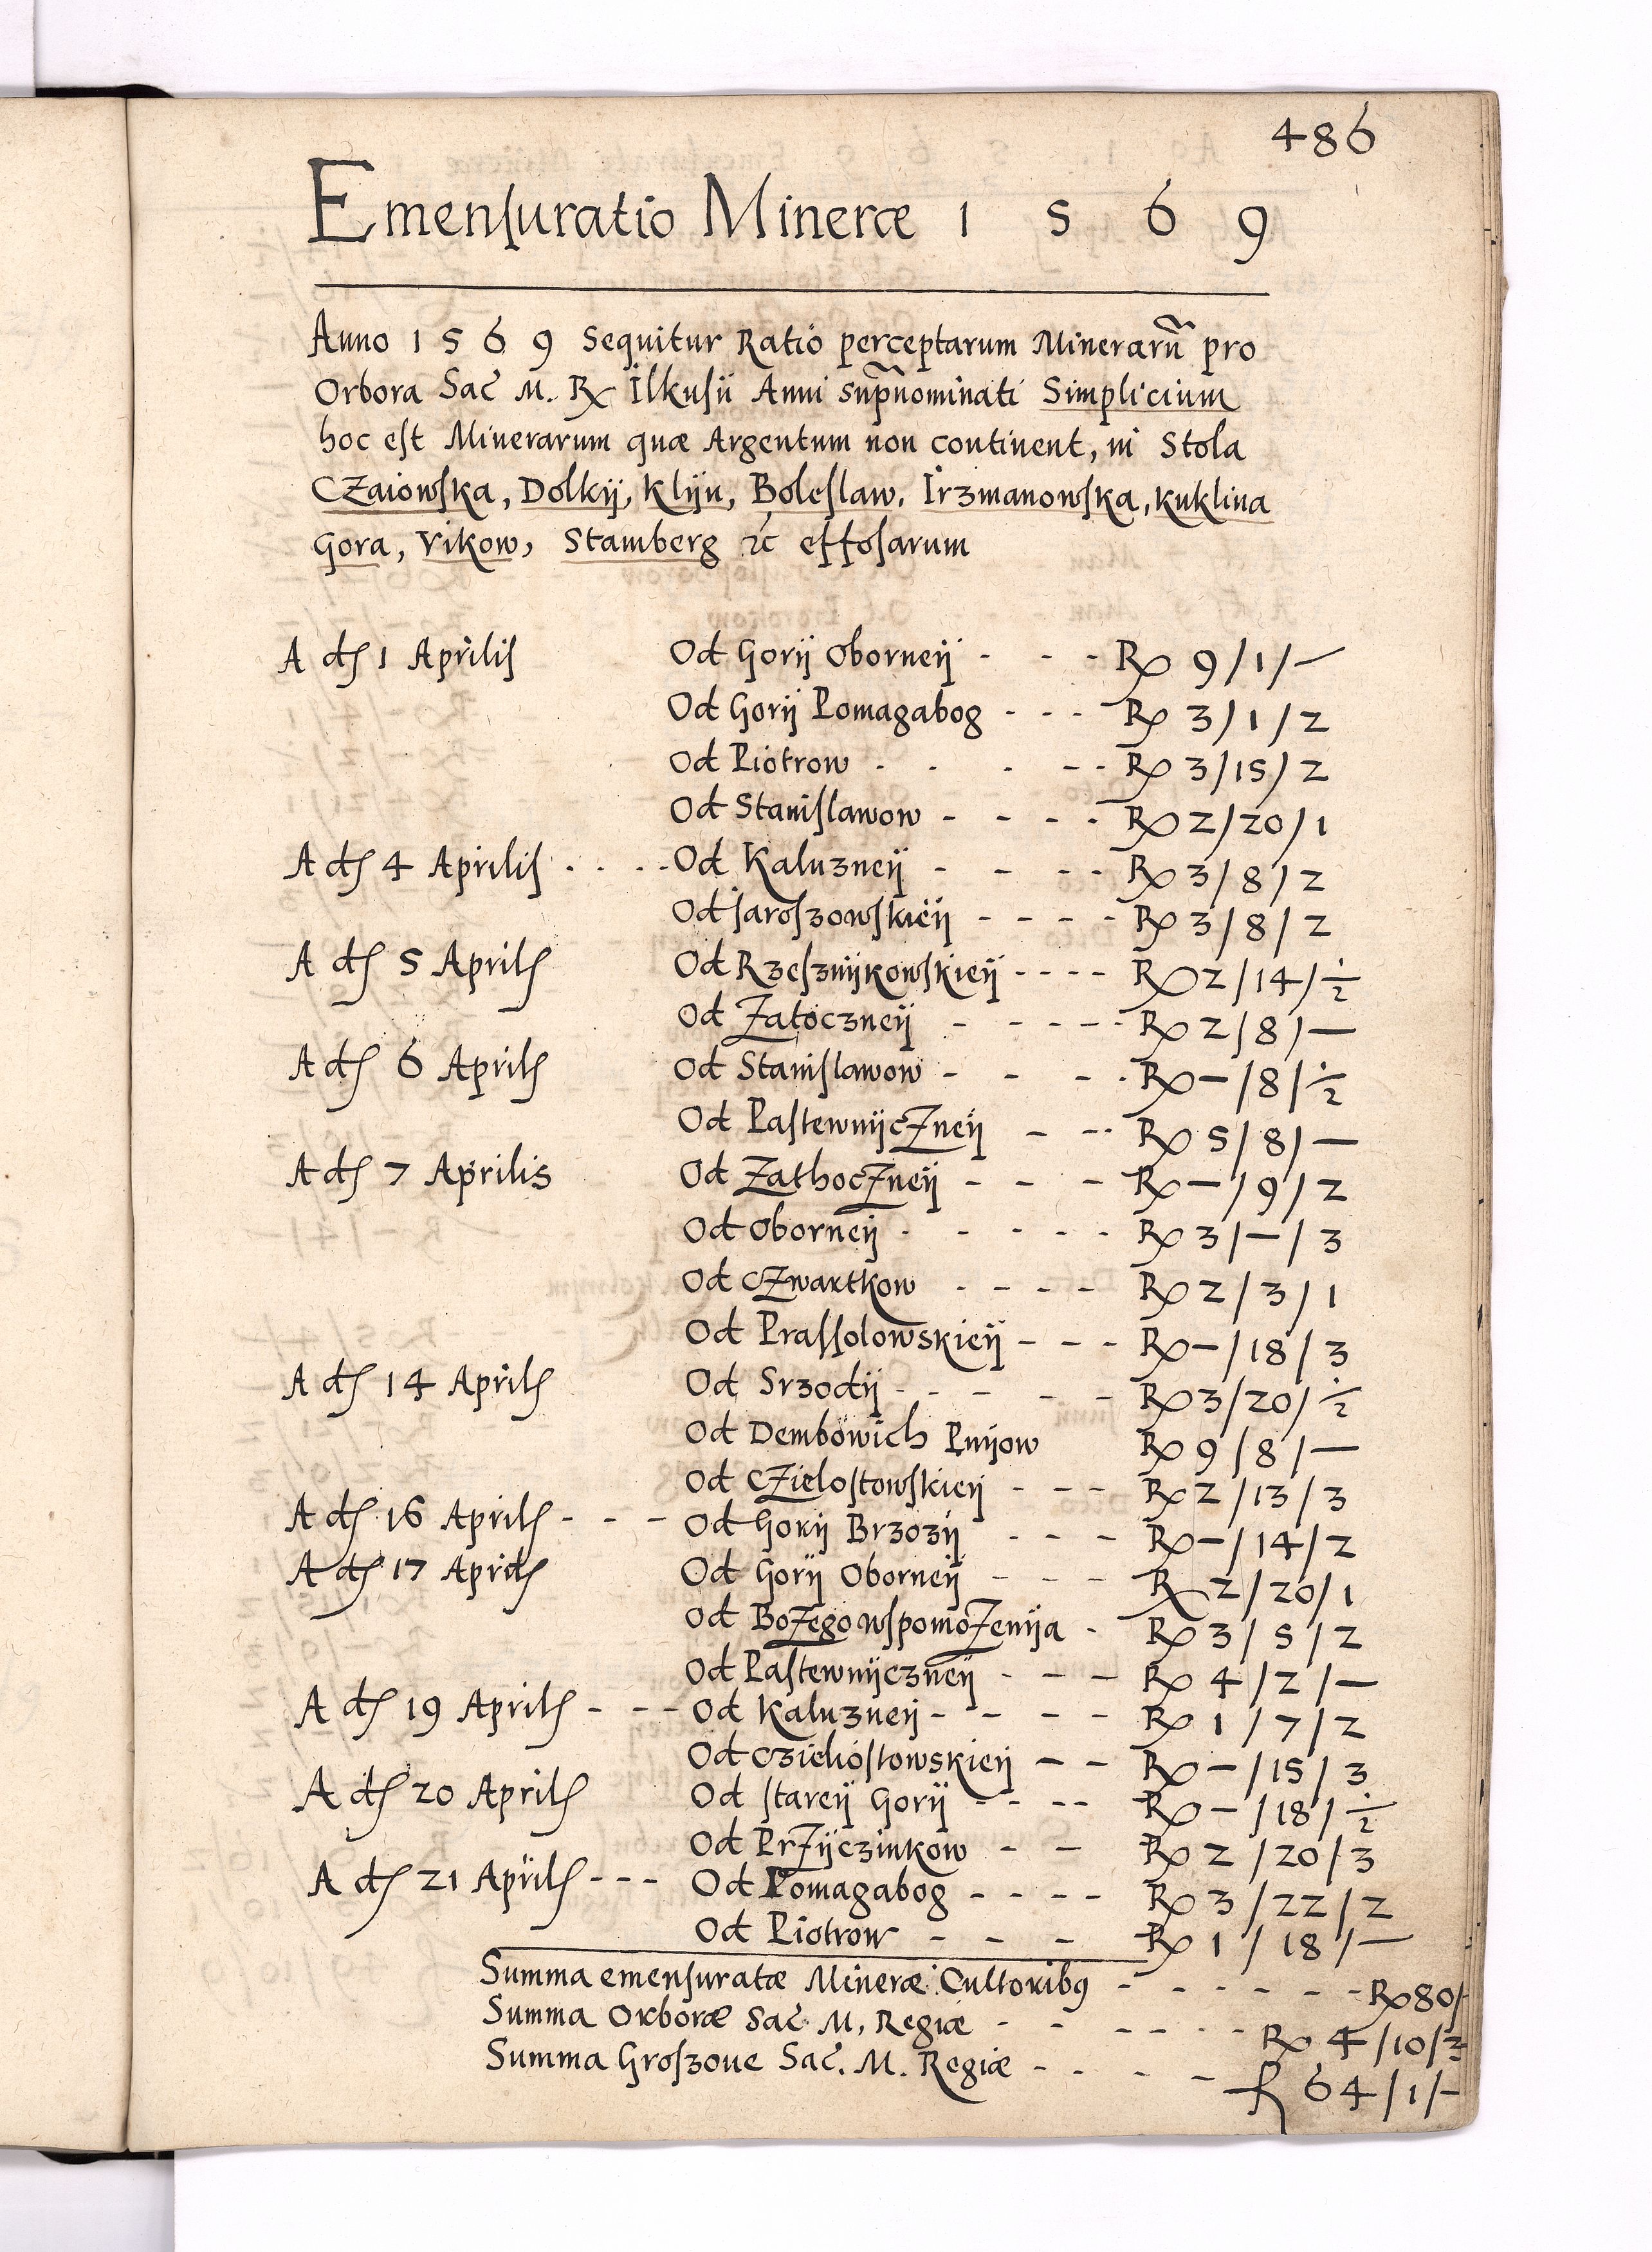 486
Emenſuratio Mineræ 1 5 6 9
Anno 1 5 6 9 Sequitur Ratio perceptarum Minerarũ pro
Orbora Sac̃ M. ℞ Ilkuſii Anni sup̃nominati Simplicium
hoc eſt Minerarum quæ Argentum non continent, in Stola
CZaiowſka, Dolkÿ, Klÿn, Boleſlaw, Irzmanowſka, Kuklina
Gora, Vikow, Stamberg ꝛc̃ effoſarum
A dſ 1 Apriliſ Od Gorÿ Oborneÿ - - - ℞ 9/1/—
Od Gorÿ Pomagabog - - - ℞ 3/1/2
Od Piotrow - - - - - ℞ 3/15/2
Od Staniſlawow - - - - ℞ 2/20/1
A dſ 4 Apriliſ - - - - Od Kaluzneÿ - - - - ℞ 3/8/2
Od Jaroſzowſkieÿ - - - - ℞ 3/8/2
A dſ 5 Aprilſ Od Rzeſznÿkowſkieÿ - - - - ℞ 2/14/½
Od Zatoczneÿ - - - - - ℞ 2/8/—
A dſ 6 Aprilſ Od Staniſlawow - - - - ℞ —/8/½
Od PaſtewnÿcZneÿ - - - ℞ 5/8/—
A dſ 7 Aprilis Od ZathocZneÿ - - - ℞ —/9/2
Od Oborneÿ - - - - - ℞ 3/—/3
Od CZwartkow - - - - ℞ 2/3/1
Od Praſſolowskieÿ - - - ℞ —/18/3
A dſ 14 Aprilſ Od Srzodÿ - - - - - ℞ 3/20/½
Od Dembowich Pnÿow ℞ 9/8/—
Od CZieloſtowſkieÿ - - - ℞ 2/13/3
A dſ 16 Aprilſ - - - Od Gorÿ Brzozÿ - - - ℞ —/14/2
A dſ 17 Aprilſ Od Gorÿ Oborneÿ - - - ℞ 2/20/1
Od BoZegowſpomoZenÿa - ℞ 3/5/2
Od Paſtewnÿczneÿ - - - ℞ 4/2/—
A dſ 19 Aprilſ - - - Od Kaluzneÿ - - - - ℞ 1/7/2
Od Czichoſtowskieÿ - - ℞ —/15/3
A dſ 20 Aprilſ Od ſtareÿ Gorÿ - - - - ℞ —/18/½
Od PrZÿczinkow - - ℞ 2/20/3
A dſ 21 Aprilſ - - - Od Pomagabog - - - - ℞ 3/22/2
Od Piotrow - - - ℞ 1/18/—
Summa emenſuratæ Mineræ Cultoribꝯ - - - - - - ℞ 80/
Summa Orboræ Sac̃ M. Regiæ - - - - - - ℞ 4/10/3
Summa Groſzoue Sac̃. M. Regiæ - - - - ƒ 64/1/—